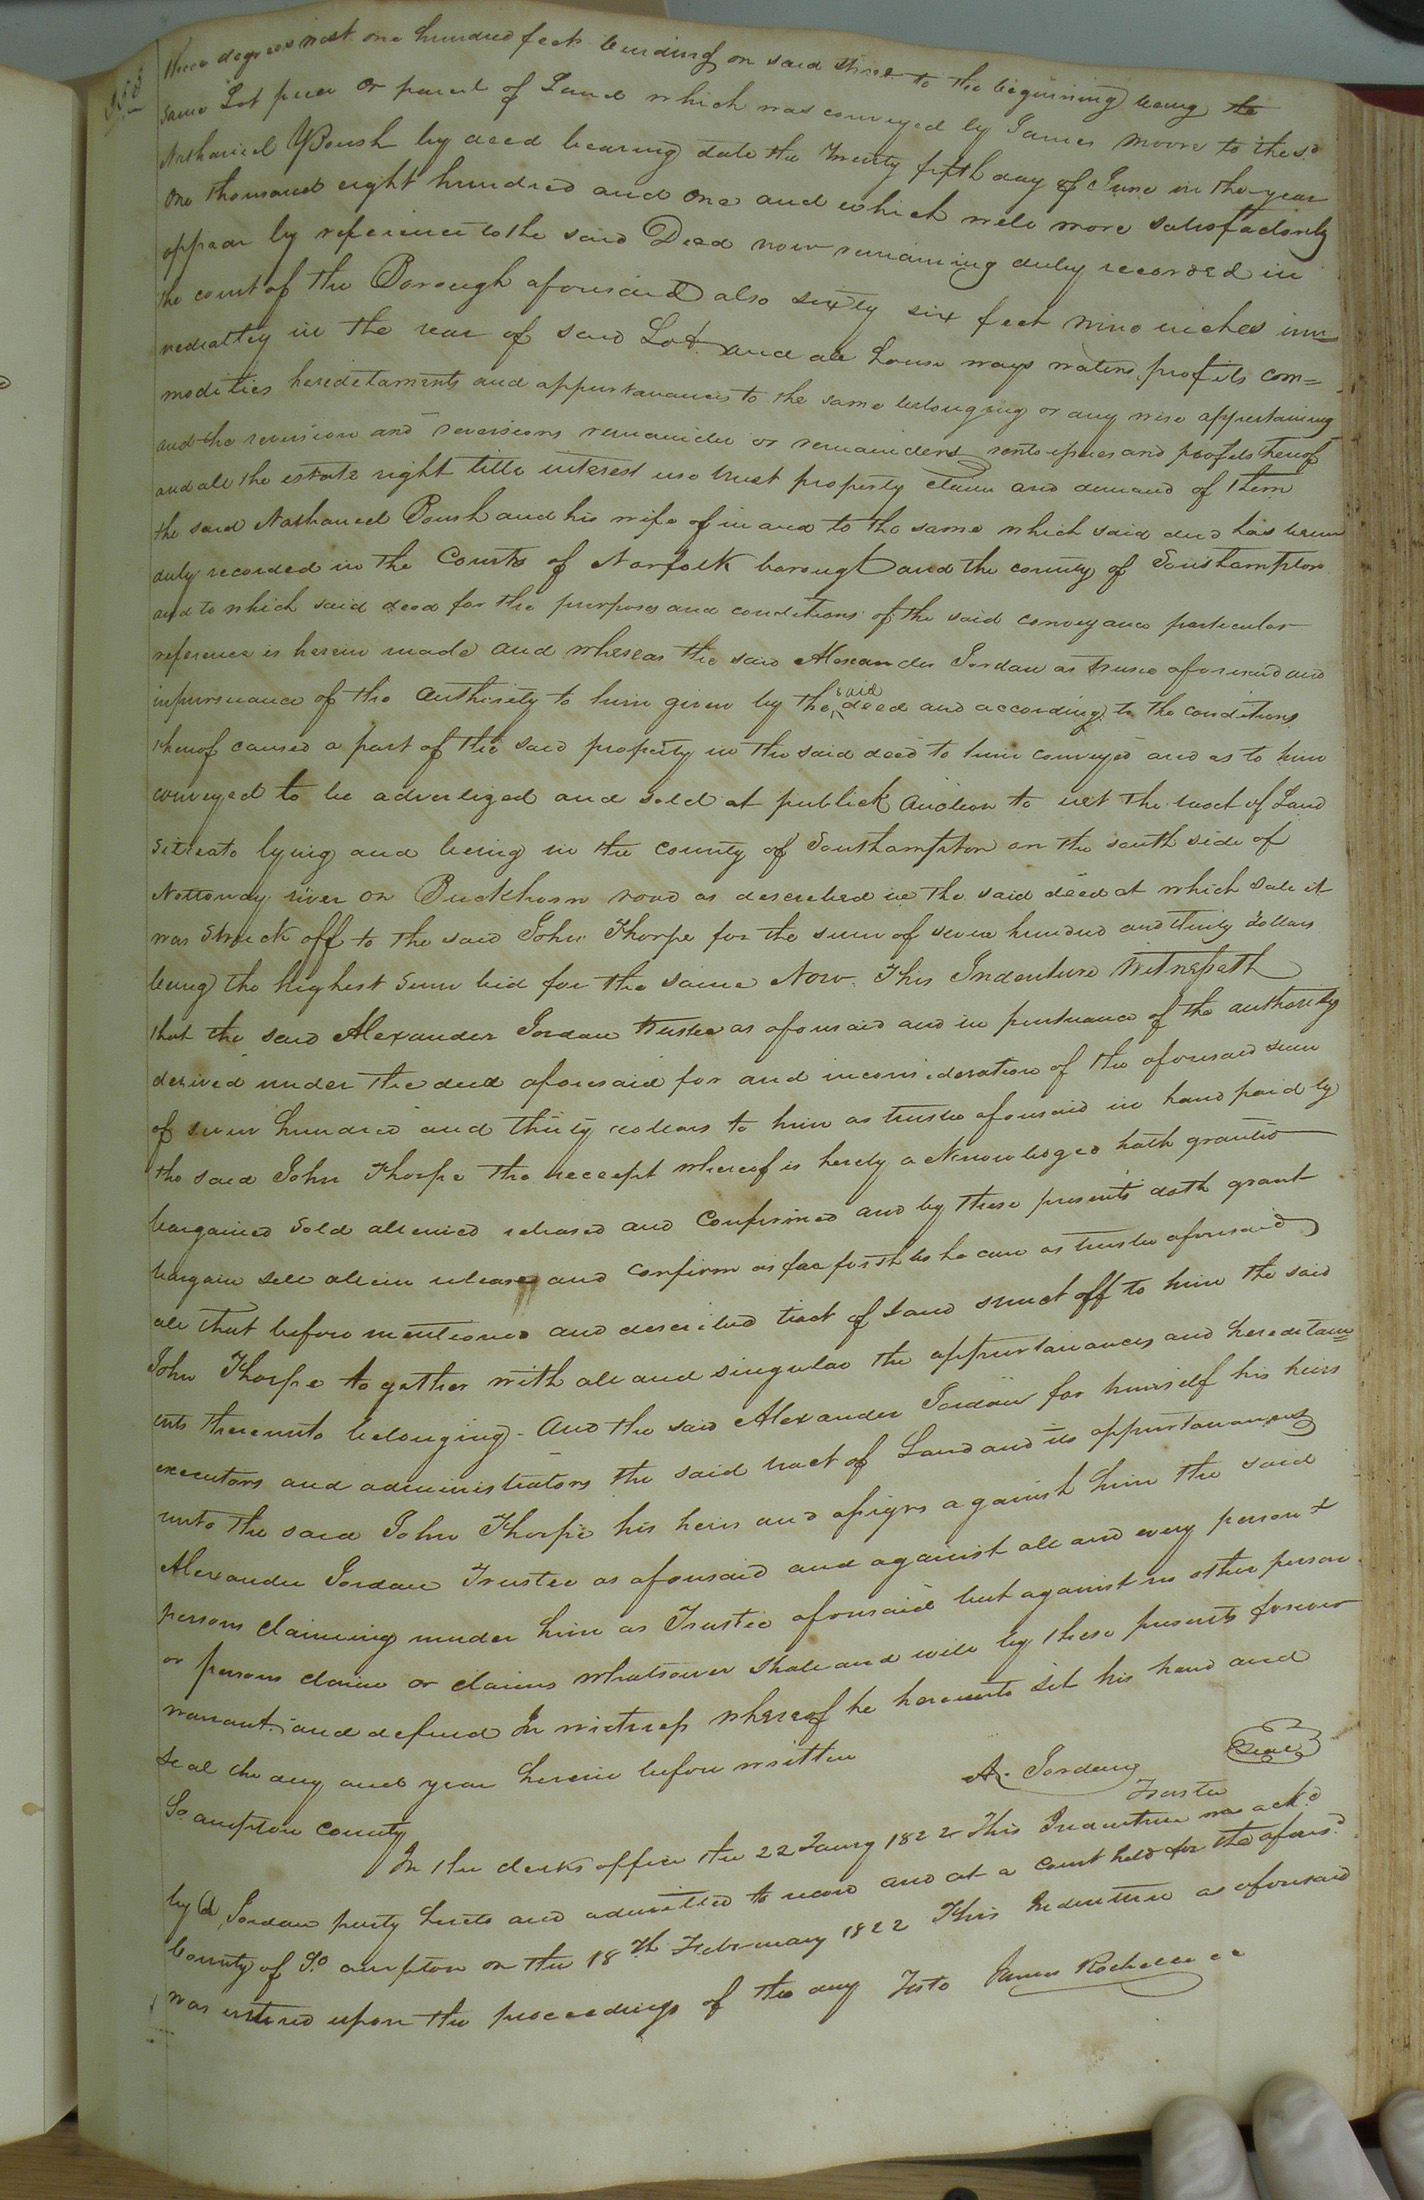 three degrees west one hundred feet binding on said street to the beginning being the
same Lot piece or parcel of Land which was conveyed by James Moore to the sd
Nathaniel Boush by deed bearing date the twenty fifth day of June in the year
One thousand eight hundred and one and which will more satisfactorily
appear by reference to the said Deed now remaining duly recorded in
the court of the Borough aforesaid also sixty six feet nine inches imm=
mediatley in the rear of said Lot and all house ways waters profits com=
modities hereditaments and appurtenances to the same belonging or any wise appertaining
and the reversion and reversions remainder or remainders rents issues and profits thereof
and all the estate right title interest use trust property claim and demand of them
the said Nathaniel Boush and his wife of in and to the same which said deed has been
duly recorded in the Courts of Norfolk borough and the county of Southampton
and to which said deed for the purposes and conditions of the said conveyance particular
reference is herein made and whereas the said Alexander Jordan as trustee aforesaid and
inpursuance of the authority to him given by the said deed and according to the conditions
thereof caused a part of the said property in the said deed to him conveyed and as to him
conveyed to be advertized and sold at publick auction to wit the tract of Land
Situate lying and being in the county of Southampton on the south side of
Nottoway river on Buckhorn road as described in the said deed at which sale it
was Struck off to the said John Thorpe for the sum of seven hundred and thirty dollars
being the highest Sum bid for the same Now This Indenture Witnesseth
that the said Alexander Jordan trustee as aforesaid and in pursuance of the authority
derived under the deed aforesaid for and inconsideration of the aforesaid sum
of seven hundred and thirty dollars to him as trustee aforesaid in hand paid by
the said John Thorpe the receept whereof is hereby acknowledged hath granted
bargained Sold aliened released and Confirmed and by these presents doth grant
bargain sell alien release and confirm as far forth as he can as trustee aforesaid
all that before mentioned and described tract of Land struct off to him the said
John Thorpe together with all and singular the appurtenances and hereditam=
ents thereunto belonging. And the said Alexander Jordan for himself his heirs
executors and administrators the said tract of Land and its appurtenances
unto the said John Thorpe his heirs and assigns against him the said
Alexander Jordan Trustee as aforesaid and against all and every person &
persons claiming under him as Trustee aforesaid but against no other person
or persons claim or claims whatsoever shall and will by these presents forever
warrant and defend In witness whereof he hereunto set his hand and
Seal the day and year herein before written
A. Jordan Seal
Trustee
So ampton County
In the clerks office the 22 Jany 1822 This Indenture was ackd
by A Jordan party hereto and admitted to record and at a court held for the afores.d
County of So ampton on the 18th February 1822 This Indenture as aforesaid
was entered upon the proceedings of the day Teste James Rochelle cc